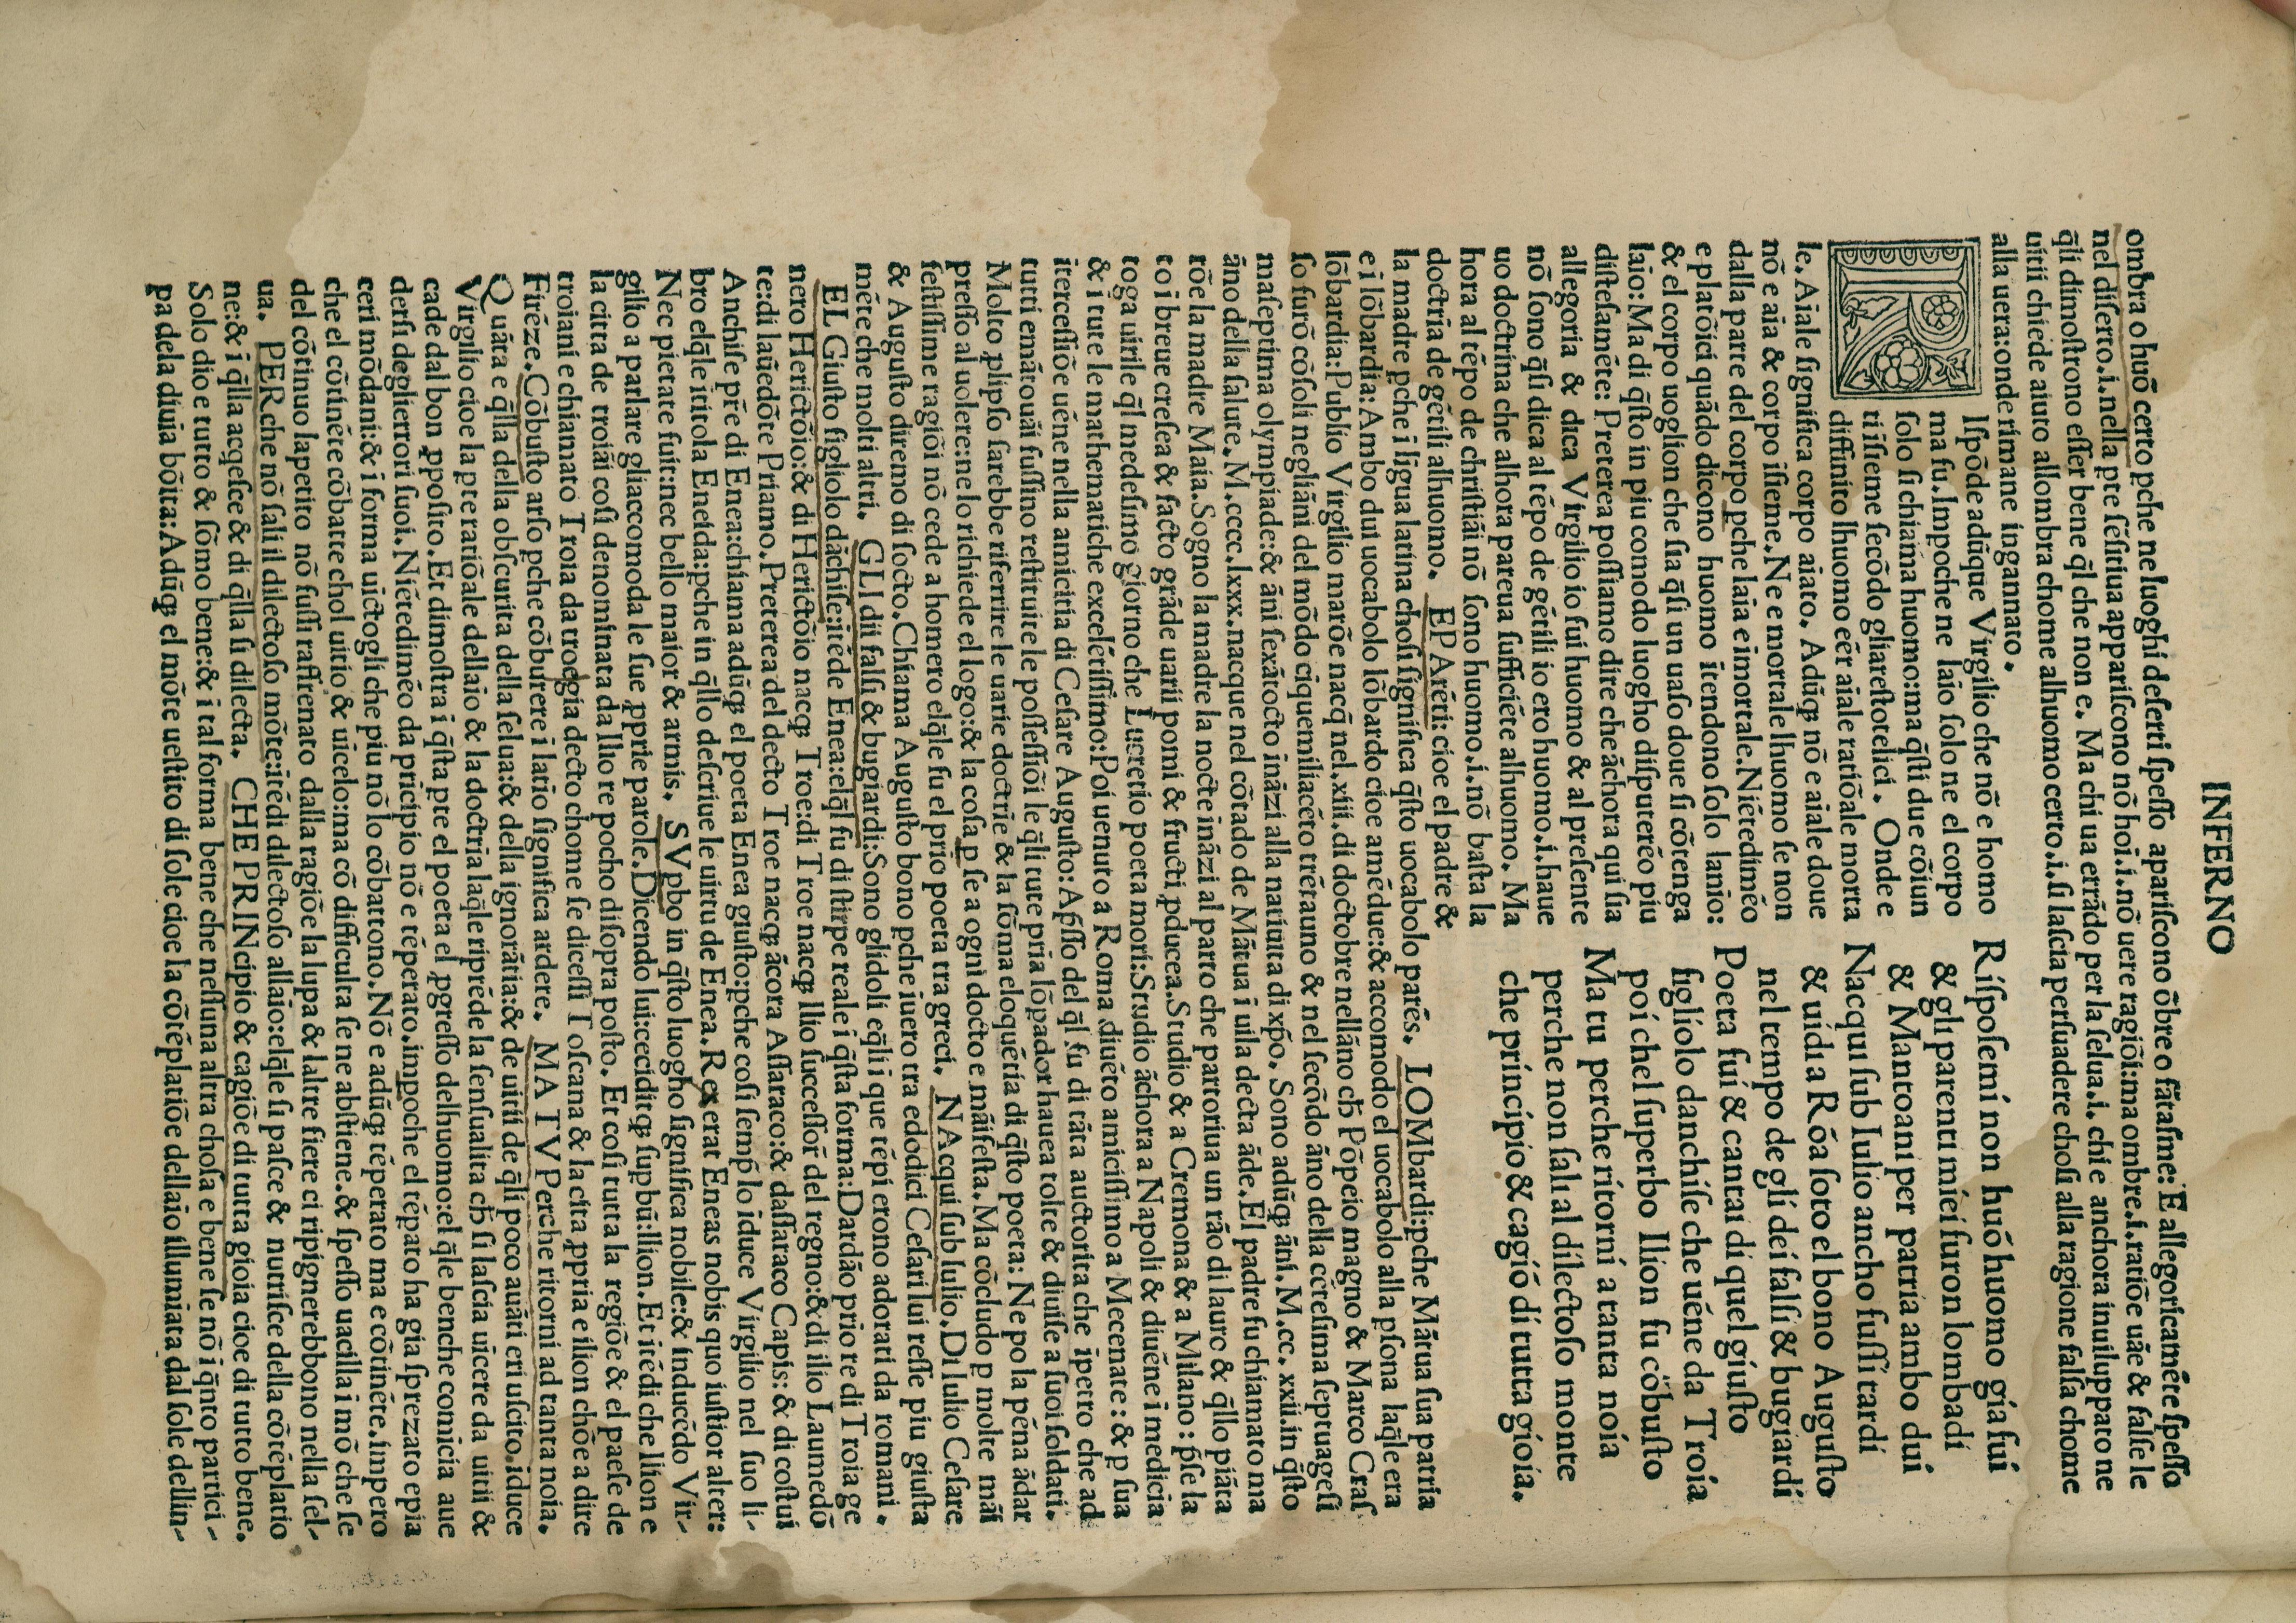 INFERNO
ombra o huō certo ꝑche ne luoghi deserti spesso apariscono ōbre o fātasme: E allegoricamēte spesso
nel diserto.i.nella ꝑte sēsitiua appariscono nō hoi.i.nō uere ragiōi:ma ombre.i.ratiōe uāe & false le
q̄li dimostrono esser bene q̄l che non e. Ma chi ua errādo per la selua.i. chi e anchora inuiluppato ne
uitii chiede aiuto allombra chome alhuomo certo.i.si lascia persuadere chosi alla ragione falsa chome
alla uera:onde rimane ingannato.
Ispōde adūque Virgilio che nō e homo
ma fu. Impoche ne laīo solo ne el corpo
solo si chiama huomo:ma q̄sti due cōiun
ti īsieme secōdo gliarestotelici. Onde e
diffinito lhuomo eēr aīale ratiōale morta
le. Aīale significa corpo aīato. Adūqꝫ nō e aīale doue
nō e aīa & corpo īsieme. Ne e mortale lhuomo se non
dalla parte del corpo ꝑche laīa e īmortale. Niētedimēo
e platōici quādo dicono huomo ītendono solo lanīo:
& el corpo uoglion che sia q̄si un uaso doue si cōtenga
laīo: Ma di q̄sto in piu comodo luogho disputerēo piu
distesamēte: Preterea possiamo dire che āchora qui sia
allegoria & dica Virgilio io fui huomo & al presente
nō sono q̄si dica al tēpo de gētili io ero huomo.i.haue
uo doctrina che alhora pareua sufficiēte alhuomo. Ma
hora al tēpo de christiāi nō sono huomo.i.nō basta la
doctrīa de gētili alhuomo. EPArēti: cioe el padre &
la madre ꝑche ī līgua latina chosi significa q̄sto uocabolo parēs. LOMbardi:ꝑche Mātua sua patria
e ī lōbardia: Ambo dui uocabolo lōbardo cioe amēdue:& accomodo el uocabolo alla ꝑsona laq̄le era
lōbardia:Publio Virgilio marōe nacq̄ nel.xiii.di doctobre nellāno cħ Pōpeio magno & Marco Cras
so furō cōsoli negliāni del mōdo cīquemiliacēto trētauno & nel secōdo āno della cētesima septuagesi
maseptima olympiade:& āni sexātocto īnāzi alla natiuita di xp̄o. Sono adūqꝫ āni.M.cc. xxii.in q̄sto
āno della salute.M.cccc.lxxx.nacque nel cōtado de Mātua ī uila decta āde.El padre fu chiamato ma
rōe la madre Maia.Sogno la madre la nocte īnāzi al parto che partoriua un rāo di lauro & q̄llo piāta
to ī breue crescea & facto grāde uarii pomi & fructi ꝓducea.Studio & a Cremona & a Milano : p̄se la
toga uirile q̄l medesimo giorno che Lucretio poeta mori:Studio āchora a Napoli & diuēne ī medicīa
& ī tute le mathematiche excelētissimo:Poi uenuto a Roma diuēto amicissimo a Mecenate : & ꝑ sua
ītercessiōe uēne nella amicitia di Cesare Augusto: Apsso del q̄l fu di tāta auctorita che īpetro che ad
tutti emātouāi fussino restituite le possessiōi le q̄li tute pria lōpador hauea tolte & diuise a suoi soldati.
Molto plipso sarebbe riferrire le uarie doctrīe & la sōma eloquētia di q̄sto poeta: Ne po la pēna ādar
presso al uolere:ne lo richiede el logo:& la cosa ꝑ se a ogni docto e māifesta. Ma cōcludo ꝑ molte māi
festissime ragiōi nō cede a homero elq̄le fu el prīo poeta tra greci. NAcqui sub Iulio. Di Iulio Cesare
& Augusto diremo di socto.Chiama Augusto bono ꝑche īuero tra edodici Cesari lui resse piu giusta
mēte che molti altri. GLI dii falsi & bugiardi:Sono glidoli eq̄li ī que tēpi erono adorati da romani.
EL Giusto figliolo dāchise:ītēde Enea:elq̄l fu di stirpe reale ī q̄sta forma:Dardāo prīo re di Troia ge
nero Herictōio:& di Herictōio nacqꝫ Troe:di Troe nacqꝫ Ilio successor̄ del regno:& di ilio Laumedō
te:di laūedōte Priamo.Preterea del decto Troe nacqꝫ ācora Assaraco:& dassaraco Capis: & di costui
Anchise pr̄e di Enea:chiama adūqꝫ el poeta Enea giusto:ꝑche cosi semp̄ lo īduce Virgilio nel suo li-
bro elq̄le ītitola Eneida:ꝑche in q̄llo descriue le uirtu de Enea. Rex erat Eneas nobis quo iustior alter:
Nec pietate fuit:nec bello maior & armis. SVpbo in q̄sto luogho significa nobile:& inducēdo Vir-
gilio a parlare gliaccomoda le sue ꝓprie parole.Dicendo lui:ceciditqꝫ supbū:ilion.Et ītēdi che Ilion e
la citta de troiāi cosi denominata da Ilio re pocho disopra posto. Et cosi tutta la regiōe & el paese de
troiani e chiamato Troia da troegia decto chome se dicessi Toscana & la citta ꝓpria e ilion chōe a dire
Firēze.Cōbusto arso ꝑche cōburere ī latīo significa ardere. MA TV Perche ritorni ad tanta noia.
Quāta e q̄lla della obscurita della selua:& della ignorātia:& de uitii de q̄li poco auāti eri uscito.īduce
Virgilio cioe la ꝑte ratiōale dellaīo & la doctrīa laq̄le riprēde la sensualita cħ si lascia uīcere da uitii &
cade dal bon ꝓposito.Et dimostra ī q̄sta ꝑte el poeta el ꝓgresso delhuomo:el q̄le benche comīcia aue
dersi deglierrori suoi.Niētedimēo da prīcipio nō e tēperato.impoche el tēpato ha gia sprezzato epia
ceri mōdani:& ī forma uictogli che piu nō lo cōbattono.Nō e adūqꝫ tēperato ma e cōtinēte.impero
che el cōtinēte cōbatte chol uitio & uīcelo:ma cō difficulta se ne abstiene.& spesso uacilla ī mō che se
del cōtinuo lapetito nō fussi raffrenato dalla ragiōe la lupa & laltre fiere ci ripīgnerebbono nella sel-
ua. PER che nō sali il dilectoso mōte:ītēdi dilectoso allaīo:elq̄le si pasce & nutrisce della cōtēplatio
ne:& ī q̄lla acqesce & di q̄lla si dilecta. CHE PRINcipio & cagiōe di tutta gioia cioe di tutto bene.
Solo dio e tutto & sōmo bene:& ī tal forma bene che nessuna altra chosa e bene se nō ī q̄nto partici-
pa dela diuīa bōita:Adūqꝫ el mōte uestito di sole cioe la cōtēplatiōe dellaīo illumīata dal sole dellin-
Risposemi non huō huomo gia fui
& gli parenti miei furon lombadi
& Mantoani per patria ambo dui
Nacqui sub Iulio ancho fussi tardi
& uidi a Rōa soto el bono Augusto
nel tempo de gli dei falsi & bugiardi
Poeta fui & cantai di quel giusto
figliolo danchise che uēne da Troia
poi chel superbo Ilion fu cōbusto
Ma tu perche ritorni a tanta noia
perche non sali al dilectoso monte
che principio & cagiō di tutta gioia.